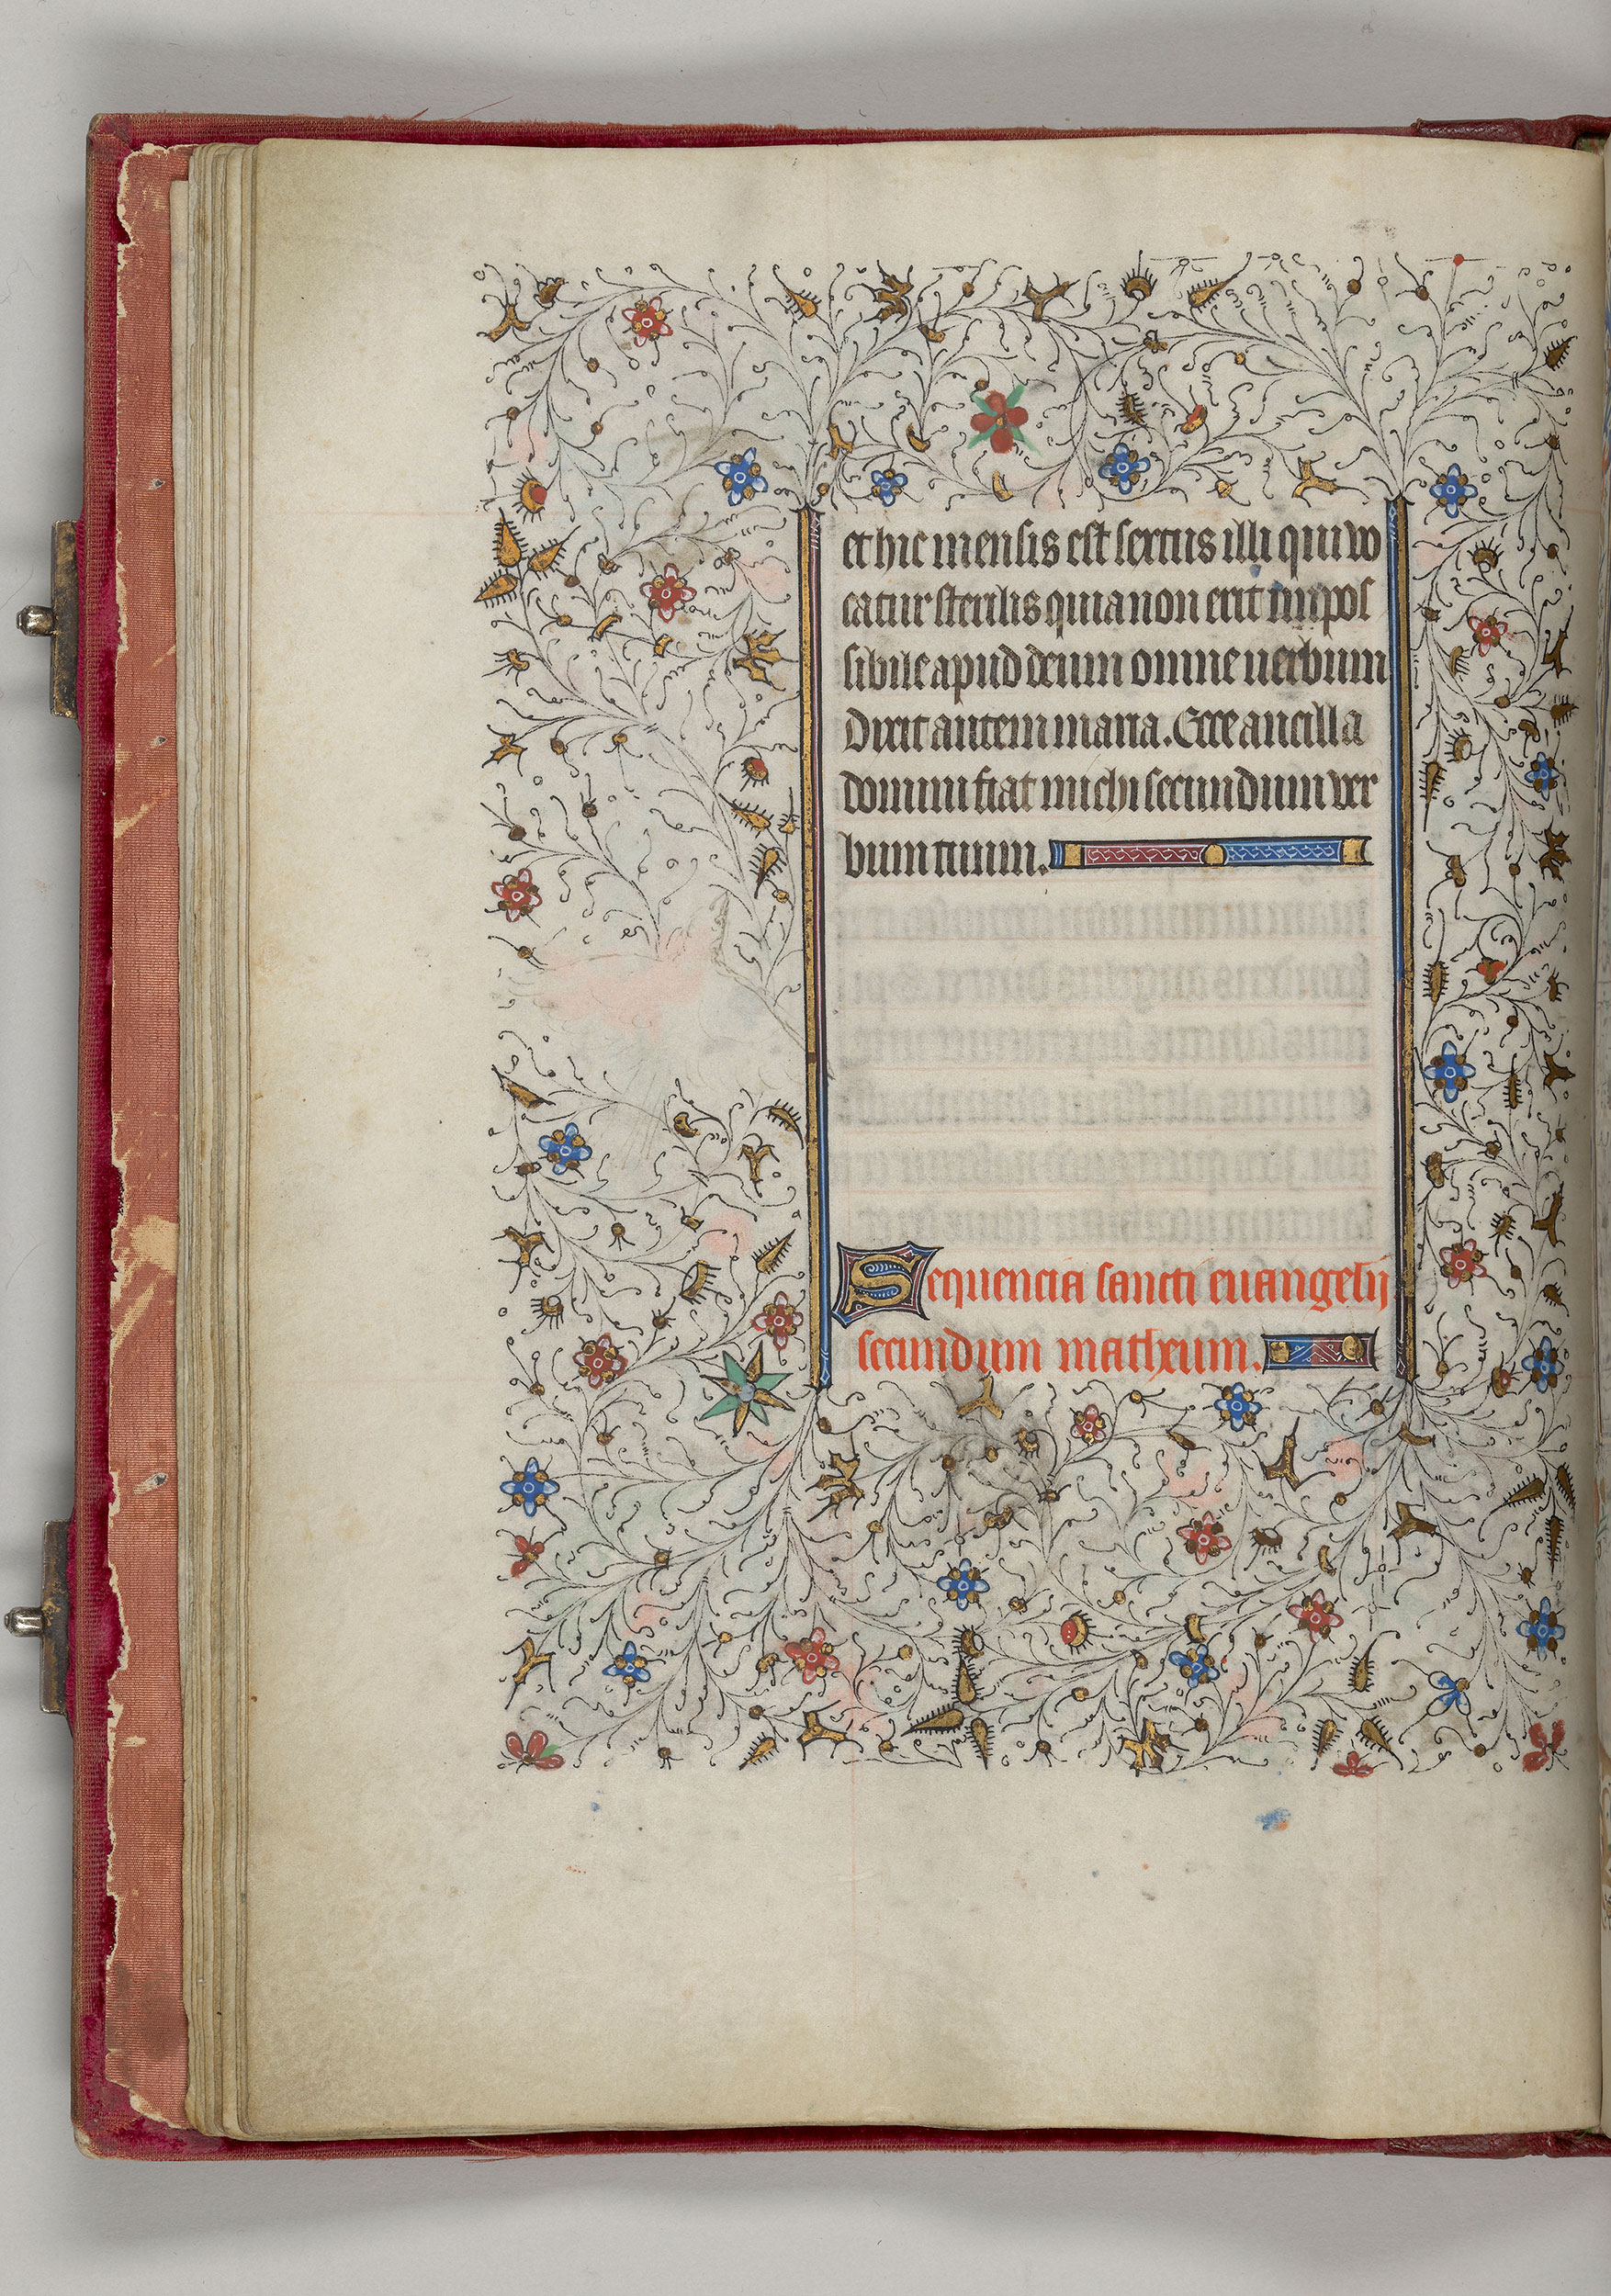 et hic mensis est sextus illi qui vo
catur sterilis quia non erit impos
sibile apud deum omne uerbum
Dixit autem maria. Ecce ancilla
domini fiat michi secundum ver
bum tuum.
Sequencia sancti euangelij
secundum matheum.